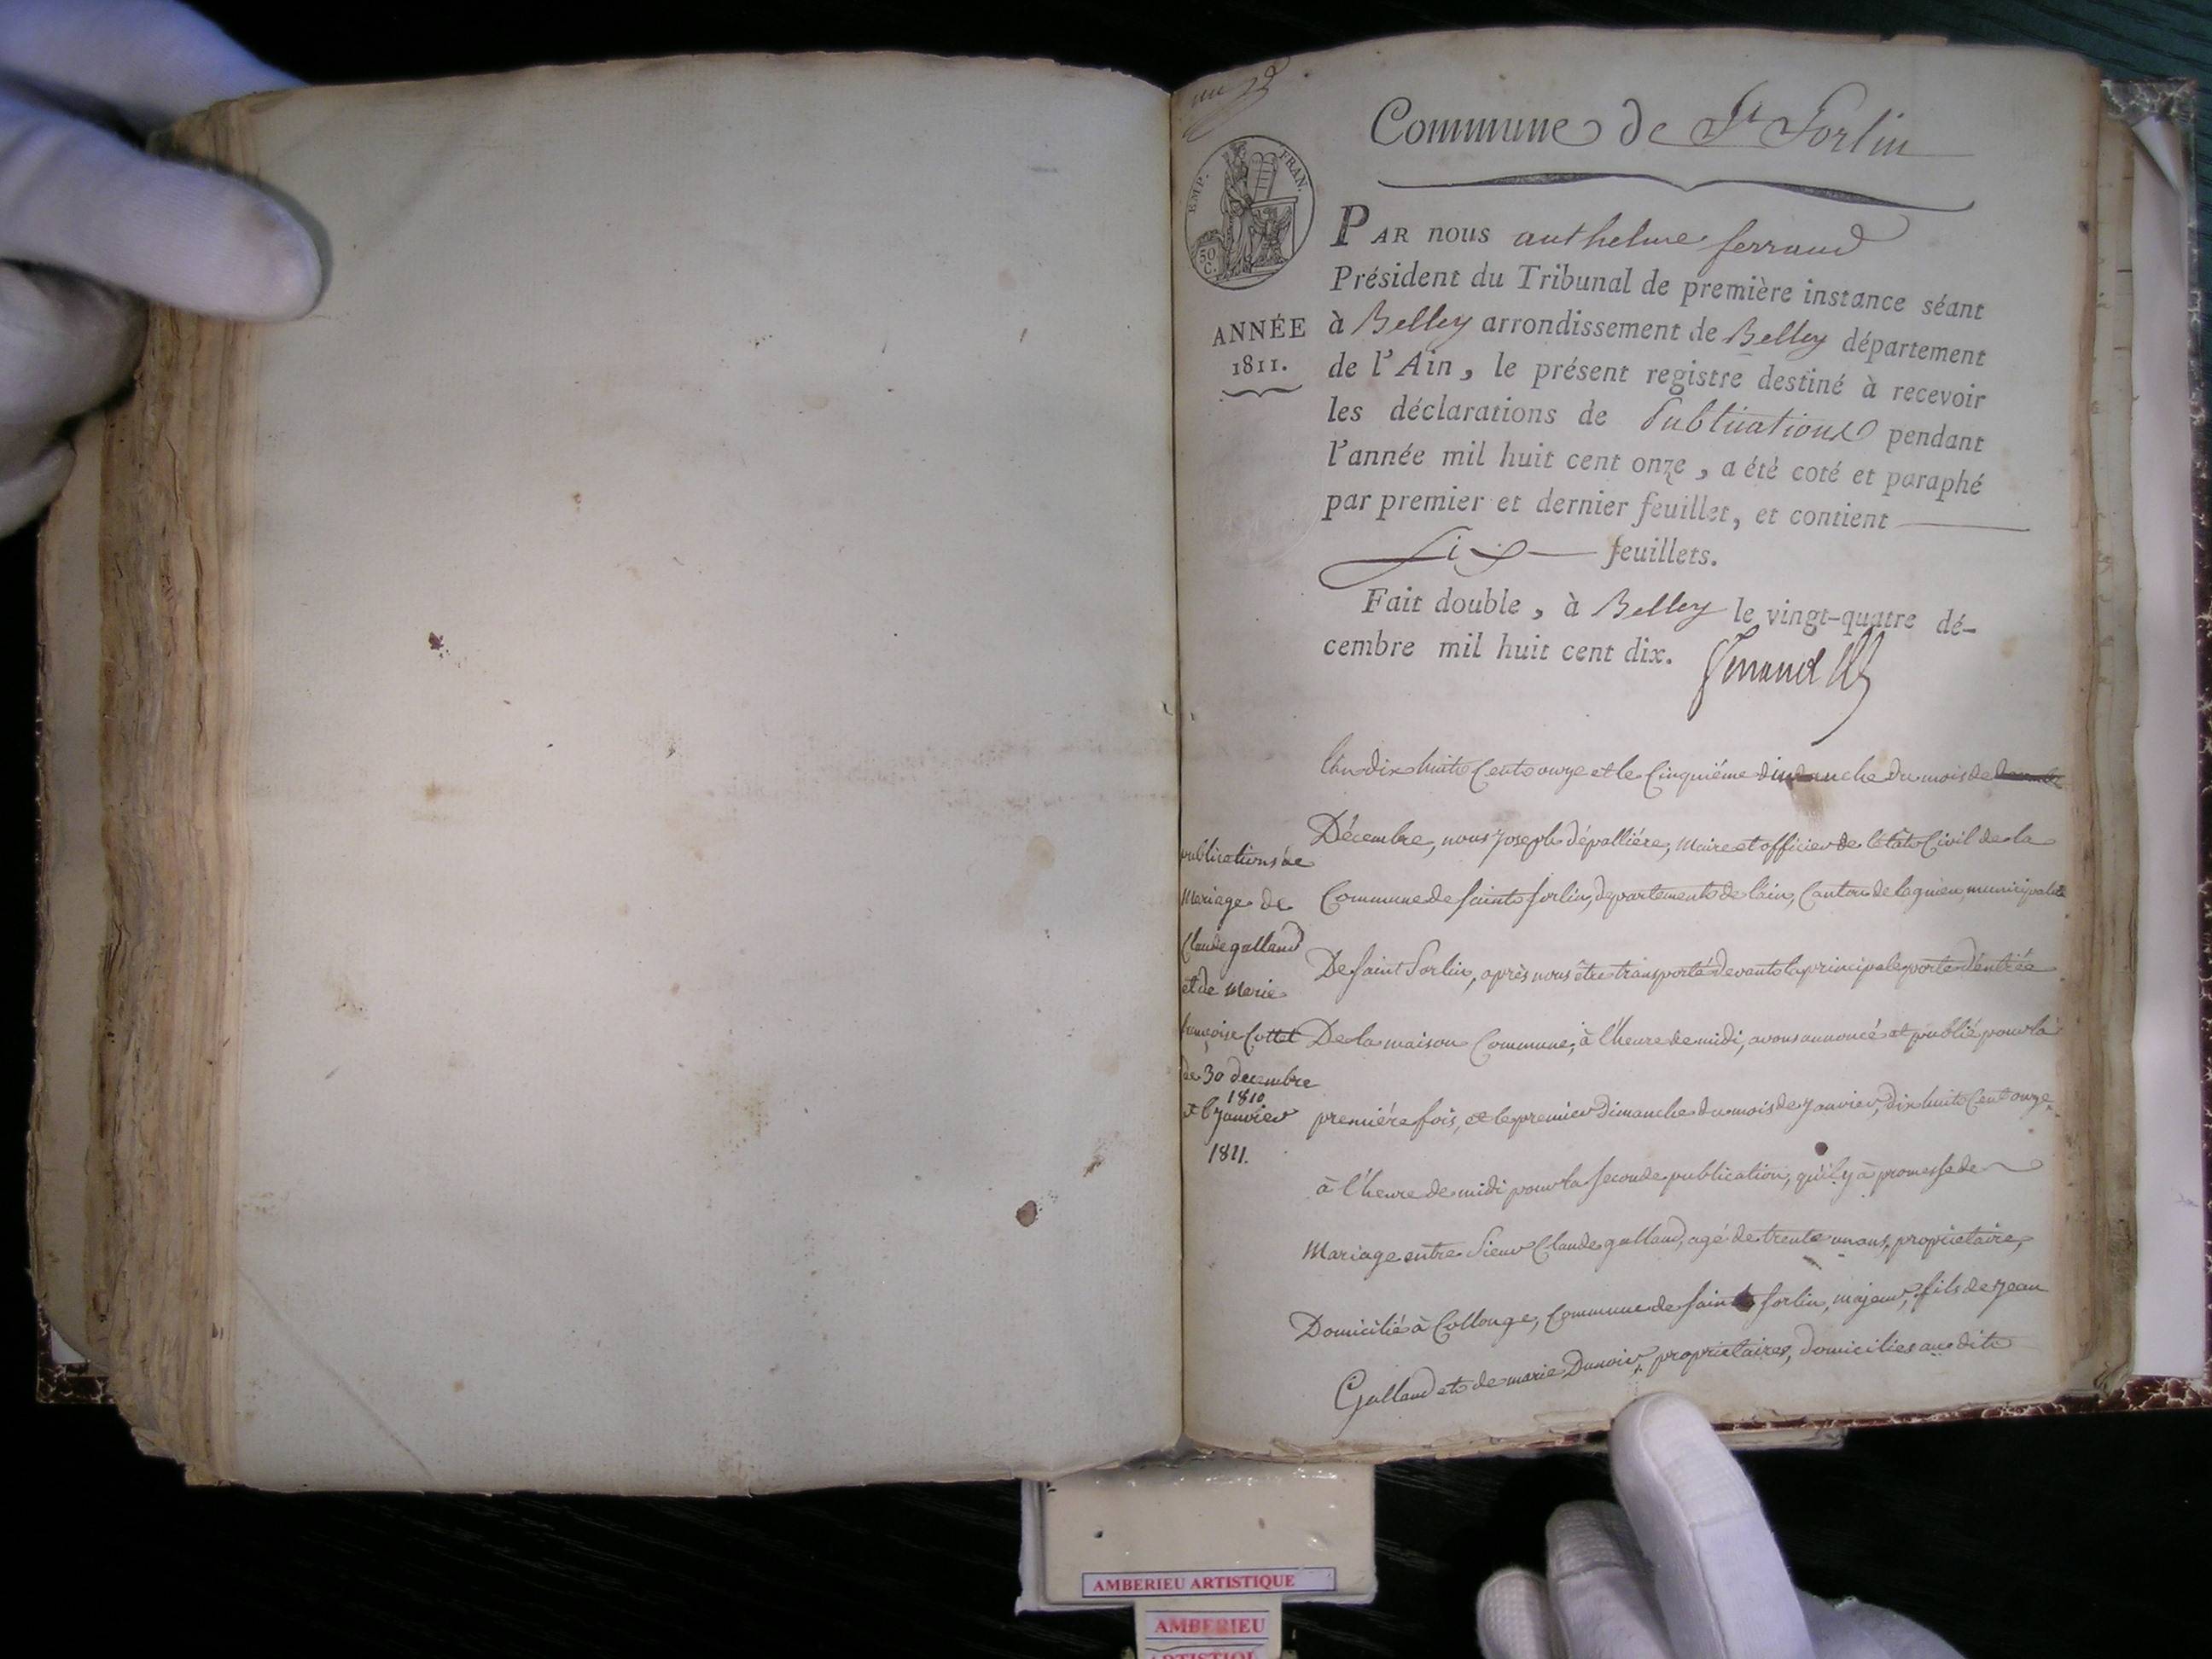 un
Commune de St Sorlin
EMP. FRAN.
50 C.
ANNÉE
1811.
PAR nous anthelme ferrand
Président du Tribunal de première instance séant
à Belley arrondissement de Belley département
de l'Ain, le présent registre destiné à recevoir
les déclarations de Publications pendant
l'année mil huit cent onze, a été coté et paraphé
par premier et dernier feuillet, et contient
six feuillets.
Fait double, à Belley le vingt-quatre dé-
cembre mil huit cent dix. Ferrand
publications de
Mariage de
Claude galland
et de Marie
françoise Cottet
de 30 decembre
1810
et 6 janvier
1811.
L'an dix huit Cent onze et le Cinquiéme dimanche du mois de
Décembre, nous joseph dépalliére, Maire et officier de l'état Civil de la
Commune de saint sorlin, departement de l'ain, Canton de lagnieu, municipalité
De saint Sorlin, après nous être transporté devant la principale porte d'entrée
De la maison Commune, à l'heure de midi, avons annoncé et publié pour la
premiére fois, et le premier dimanche du mois de janvier, dix huit Cent onze,
à l'heure de midi pour la seconde publication, qu'il y à promesse de
Mariage entre Sieur Claude galland, agé de trente un ans, propriétaire,
Domicilié à Collonge, Commune de saint sorlin, majeur, fils de jean
Galland et de marie Dunoir, propriétaires, domicilies au dit
AMBERIEU ARTISTIQUE
AMBERIEU
ARTISTIQUE